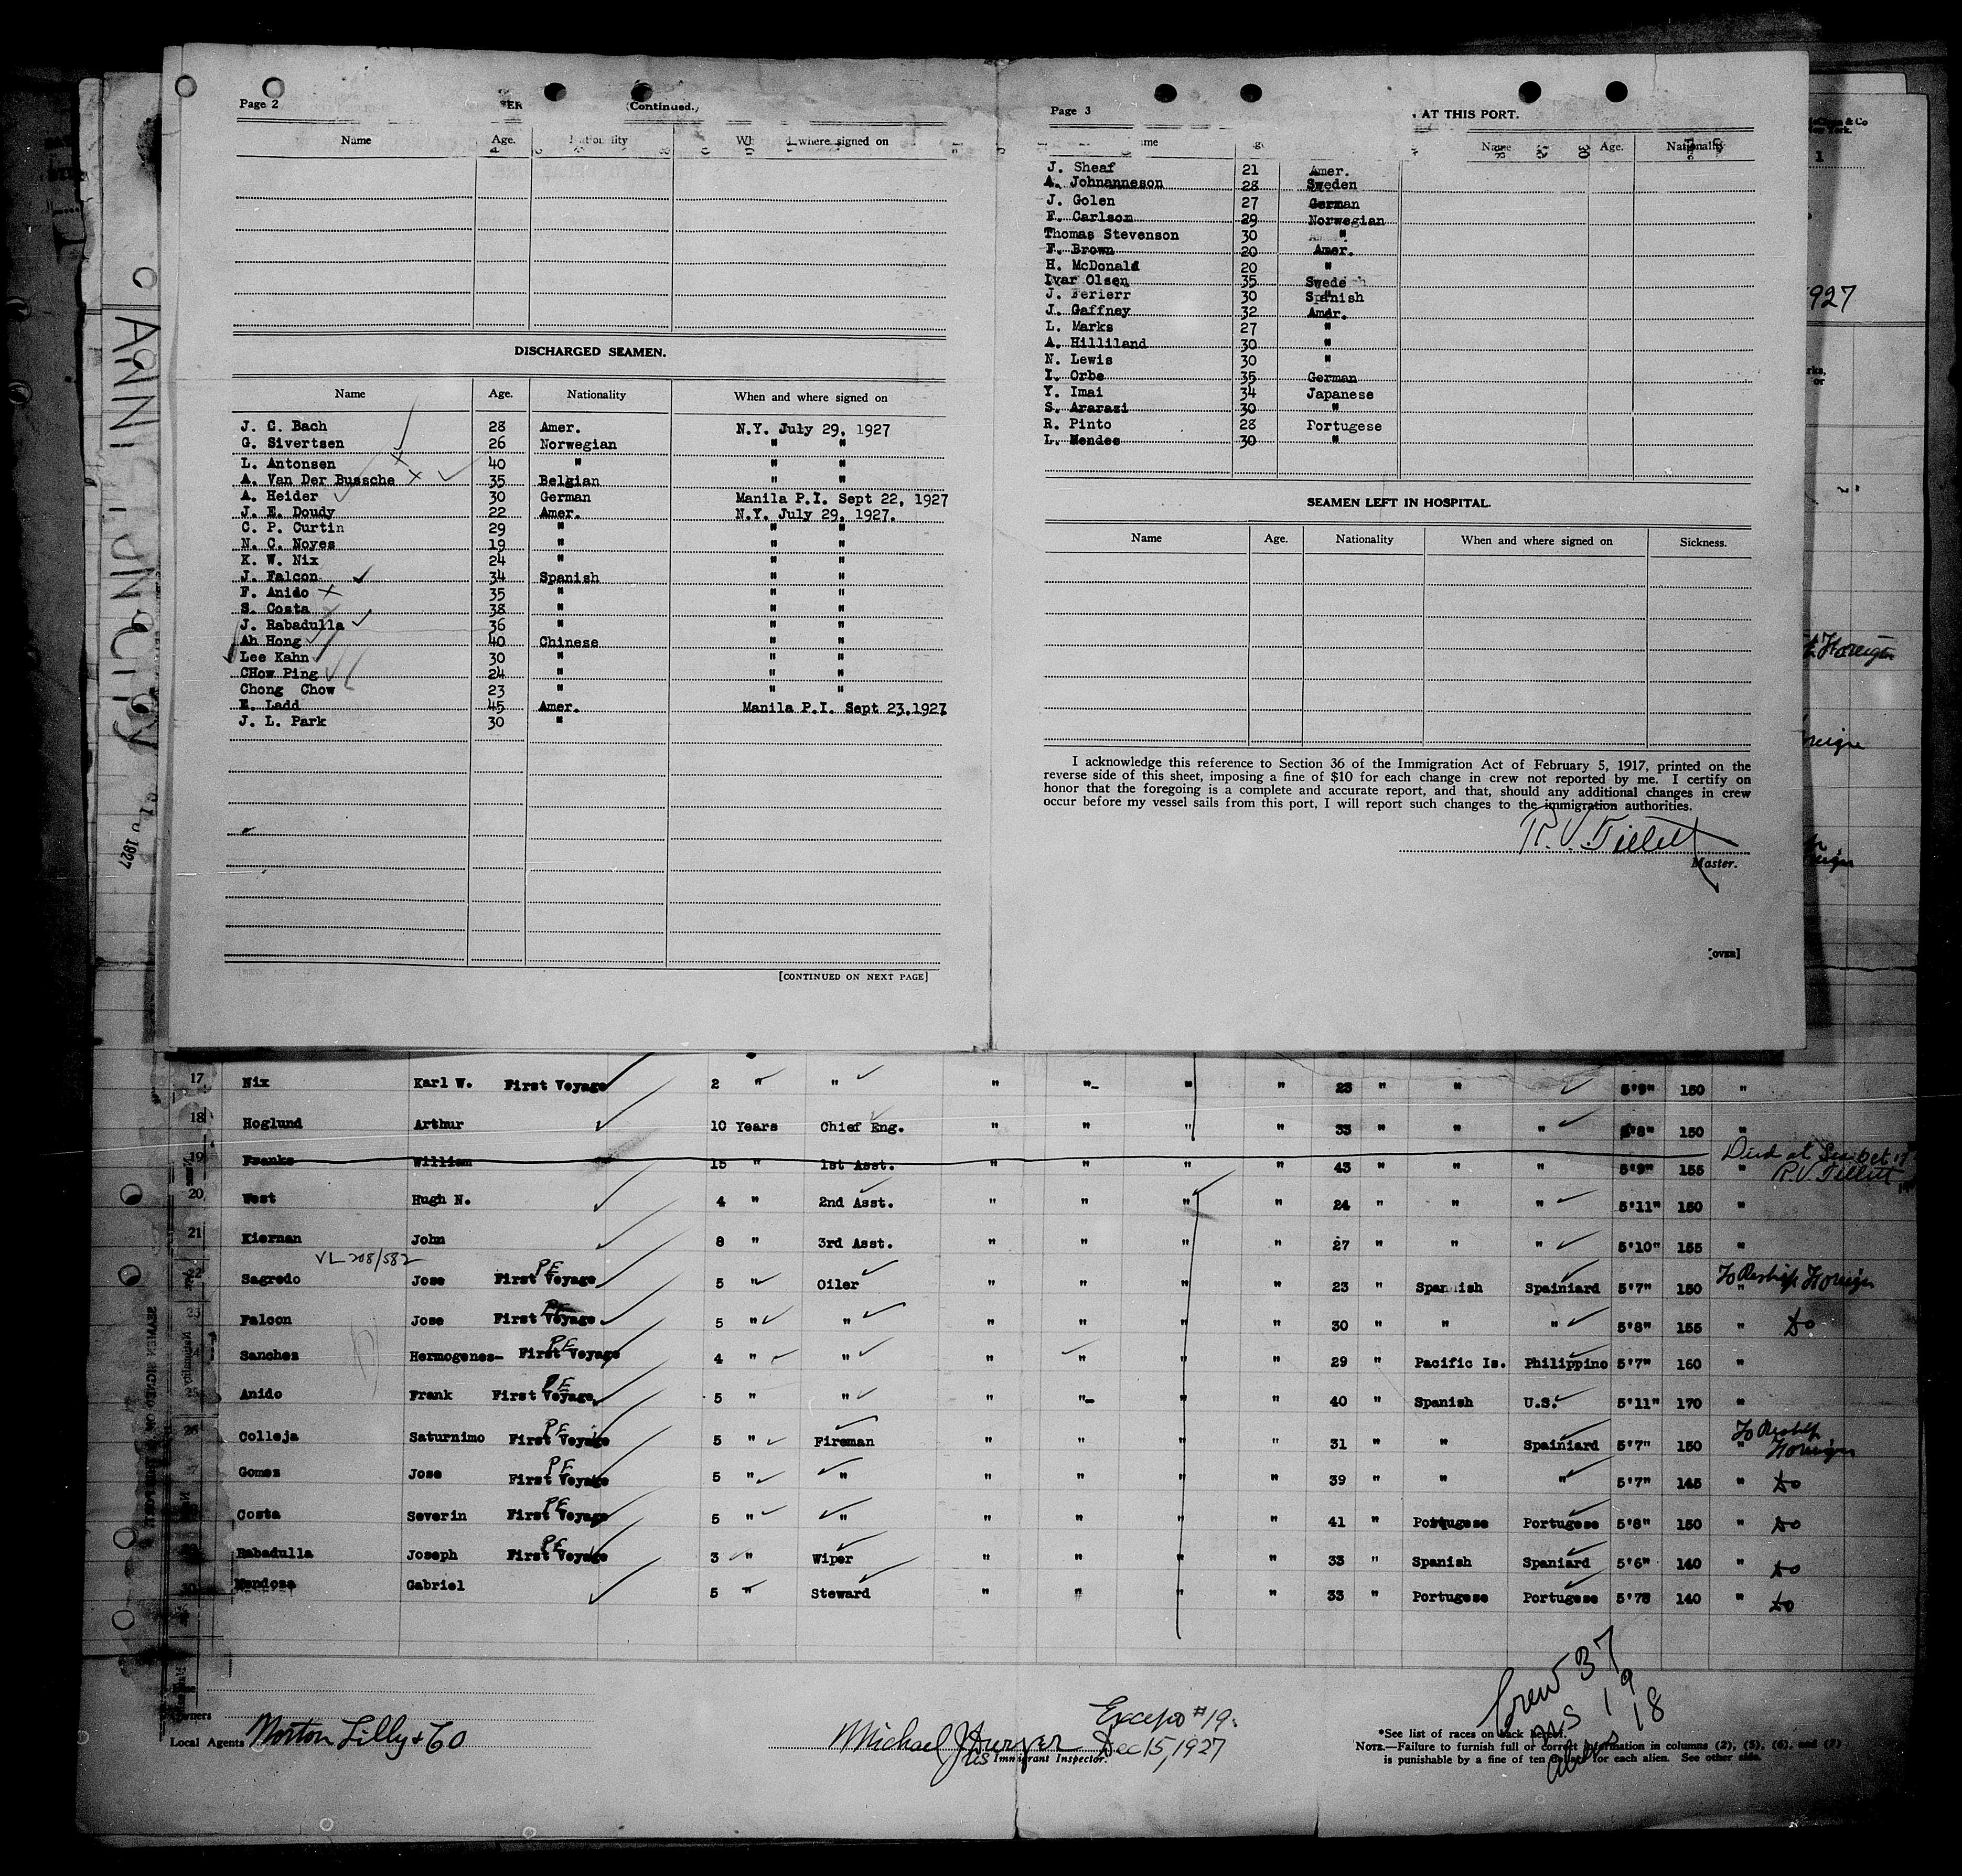 Page 2 (Continued.)
Name Age. Nationality where signed on
DISCHARGED SEAMEN.
Name Age. Nationality When and where signed on
J. C. Bach 28 Amer. N.Y. July 29, 1927
G. Sivertsen 26 Norwegian " "
L. Antonsen 40 " " "
A. Van Der Bussche 35 Belgian " "
A. Heider 30 German Manila P.I. Sept 22, 1927
J. E. Doudy 22 Amer. N.Y. July 29, 1927.
C. P. Curtin 29 " " "
N. C. Noyes 19 " " "
K. W. Nix 24 " " "
J. Falcon 34 Spanish " "
F. Anido 35 " " "
S. Costa 38 " " "
J. Rabadulla 36 " " "
Ah Hong 40 Chinese " "
Lee Kahn 30 " " "
CHow Ping 24 " " "
Chong Chow 23 " " "
E. Ladd 45 Amer. Manila P.I. Sept 23,1927
J. L. Park 30 "
[CONTINUED ON NEXT PAGE]
Page 3 AT THIS PORT.
Name Age. Nationality
J. Sheaf 21 Amer.
A. Johnanneson 28 Sweden
J. Golen 27 German
E. Carlson 29 Norwegian
Thomas Stevenson 30 "
F. Brown 20 Amer.
H. McDonald 20 "
Ivar Olsen 35 Swede
J. Ferierr 30 Spanish
J. Gaffney 32 Amer.
L. Marks 27 "
A. Hilliland 30 "
N. Lewis 30 "
I. Orbe 35 German
Y. Imai 34 Japanese
S. Ararazi 30 "
R. Pinto 28 Portugese
L. Mendes 30 "
SEAMEN LEFT IN HOSPITAL.
Name Age. Nationality When and where signed on Sickness.
I acknowledge this reference to Section 36 of the Immigration Act of February 5, 1917, printed on the
reverse side of this sheet, imposing a fine of $10 for each change in crew not reported by me. I certify on
honor that the foregoing is a complete and accurate report, and that, should any additional changes in crew
occur before my vessel sails from this port, I will report such changes to the immigration authorities.
R.V. Tillett
Master.
[OVER]
17 Nix Karl W. First Voyage 2 " " " "- " " 23 " " 5'9" 150 "
18 Hoglund Arthur 10 Years Chief Eng. " " " " 33 " " " 5'8" 150 "
19 Franks William 15 " 1st Asst. " " " " 43 " " " 5'9" 155 " Died at Sea Oct 17
R.V. Tillett
20 West Hugh N. 4 " 2nd Asst. " " " " 24 " " " 5'11" 150 "
21 Kiernan John 8 " 3rd Asst. " " " " 27 " " " 5'10" 155 "
VL 208/582
22 Sagredo Jose First Voyage PE 5 " Oiler " " " " 23 " Spanish Spainiard 5'7" 150 " To Reship Foreign
23 Falcon Jose First Voyage PE 5 " " " " " " 30 " " " 5'8" 155 " do
24 Sanchez Hermogenes- First Voyage PE 4 " " " " " " 29 " Pacific Is. Philippino 5'7" 160 "
25 Anido Frank First Voyage PE 5 " " " "- " " 40 " Spanish U.S. 5'11" 170 "
26 Colleja Saturnimo First Voyage PE 5 " Fireman " " " " 31 " " Spainiard 5'7" 150 " To Reship Foreign
Gomez Jose First Voyage PE 5 " " " " " " 39 " " " 5'7" 145 " do
Costa Severin First Voyage PE 5 " " " " " " 41 " Portugese Portugese 5'8" 150 " do
Rabadulla Joseph First Voyage PE 3 " Wiper " " " " 33 " Spanish Spaniard 5'6" 140 " do
30 Mendoza Gabriel 5 " Steward " " " " 33 " Portugese Portugese 5'78 140 " do
Crew 37
US 19
Aliens 18
Owners
Local Agents Norton Lilly & Co
Except #19.
Michael J Dwyer Dec 15, 1927
US Immigrant Inspector.
*See list of races on back hereof.
NOTE.—Failure to furnish full or correct information in columns (2), (5), (6), and (7)
is punishable by a fine of ten dollars for each alien. See other side.
1927
Foreign